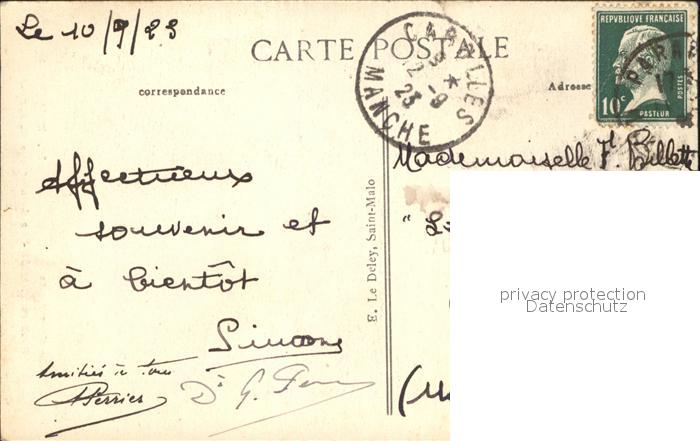 Le 10/9/23
CARTE POSTALE
correspondance
Adresse
CAROLLES
* 12-9
23
MANCHE
REPUBLIQUE FRANÇAISE
10c
POSTES
PASTEUR
Mademoiselle F. Billette
Affectueux
souvenir et
à bientôt
Simone
Amitiés à tous
Perrier
Dr G.
E. Le Deley, Saint-Malo
privacy protection
Datenschutz